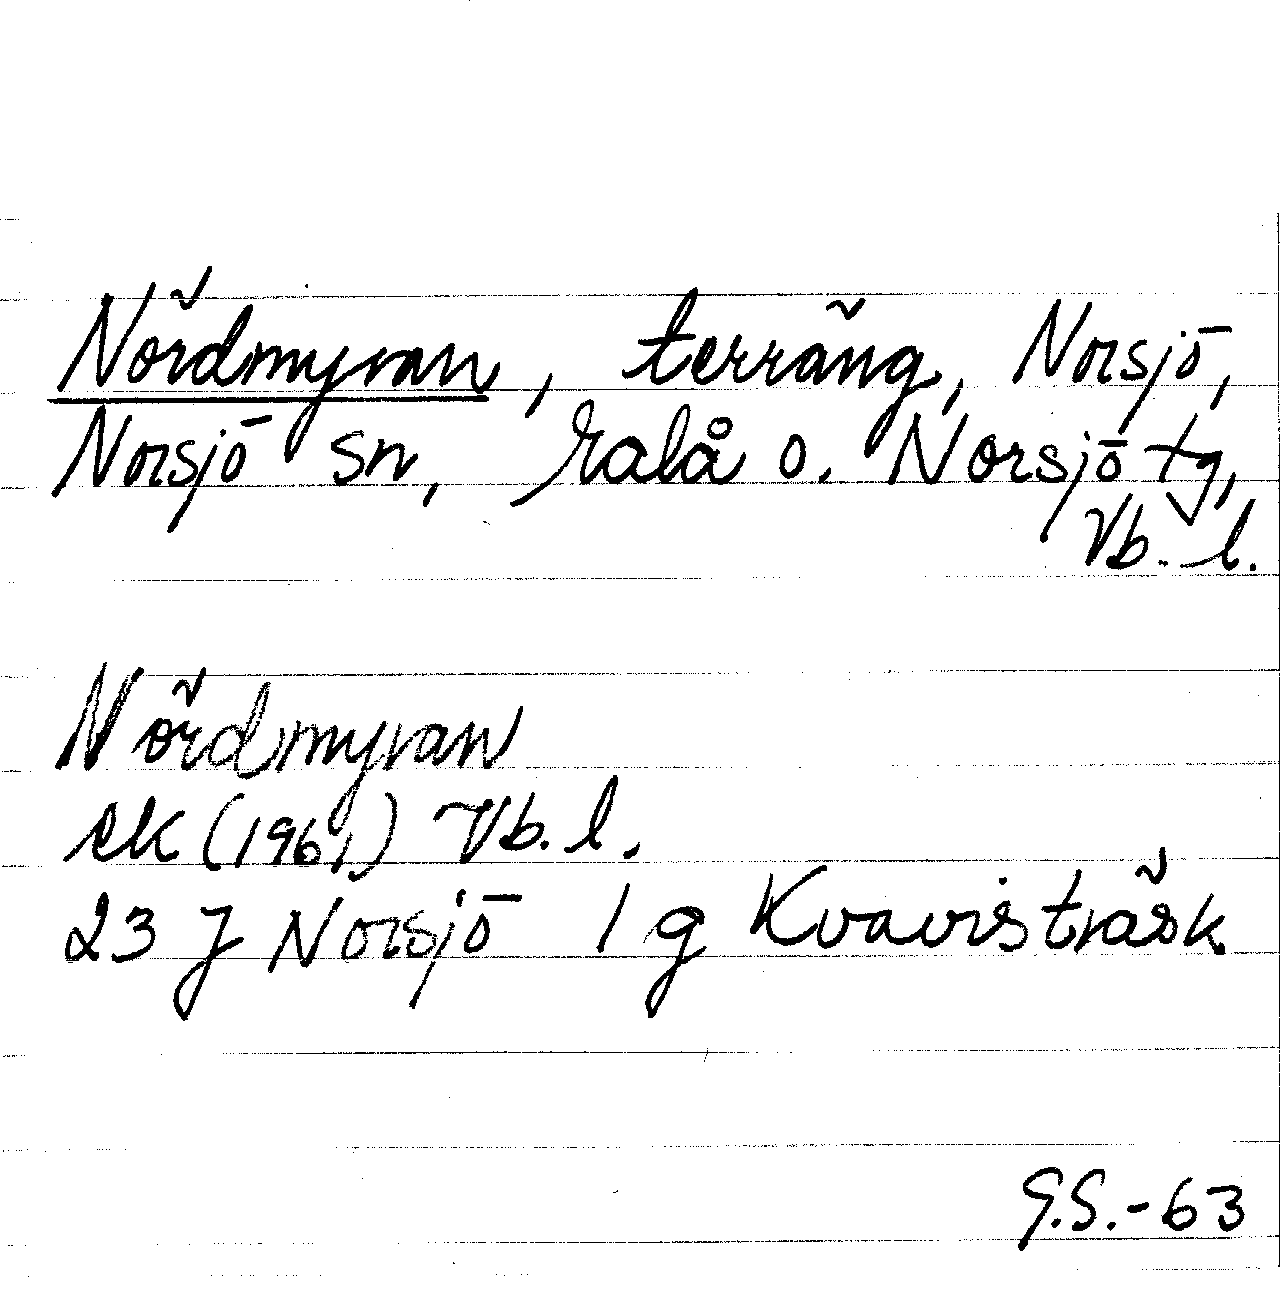 Nördmyran, terräng, Norsjö,
Norsjö sn, Malå o. Norsjö tg,
Vb. l.
Nördmyran
ek (1961) Vb. l.
23 J Norsjö 1 g Kvavisträsk
G.S.-63